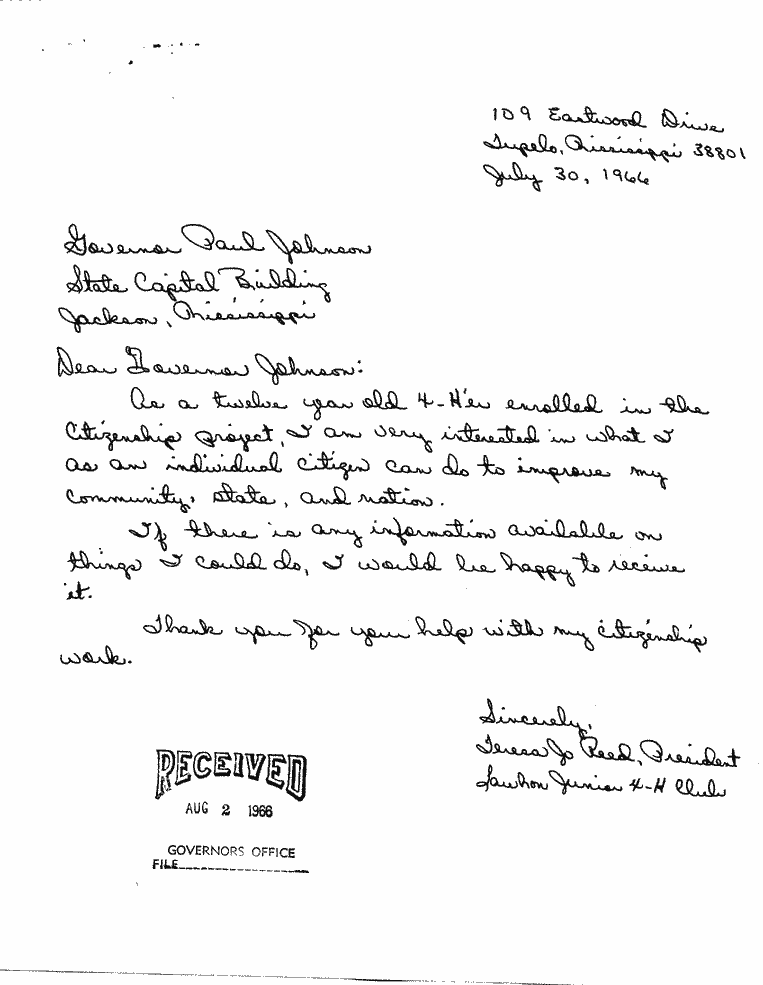 109 Eastwood Drive
Tupelo, Mississippi 38801
July 30, 1966
Governor Paul Johnson
State Capital Building
Jackson, Mississippi
Dear Governor Johnson:
As a twelve year old 4-H'er enrolled in the
Citizenship project, I am very interested in what I
as an individual citizen can do to improve my
community, state, and nation.
If there is any information available on
things I could do, I would be happy to receive
it.
Thank you for your help with my citizenship
work.
Sincerely,
Teresa Jo Reed, President
Lawhon Junior 4-H Club
RECEIVED
AUG 2 1966
GOVERNORS OFFICE
FILE